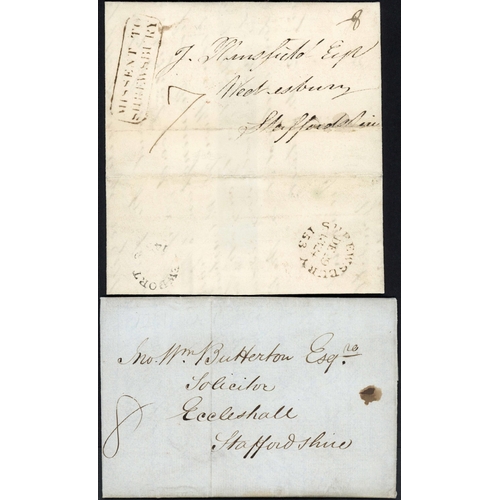 8
MISSENT TO
SHREWSBURY
J. Winsfield Esqr
7
Wednesbury
Staffordshire
SHREWSBURY
153
NEWPORT
Jno. Wm. Butterton Esq.re
Solicitor
Eccleshall
8
Staffordshire